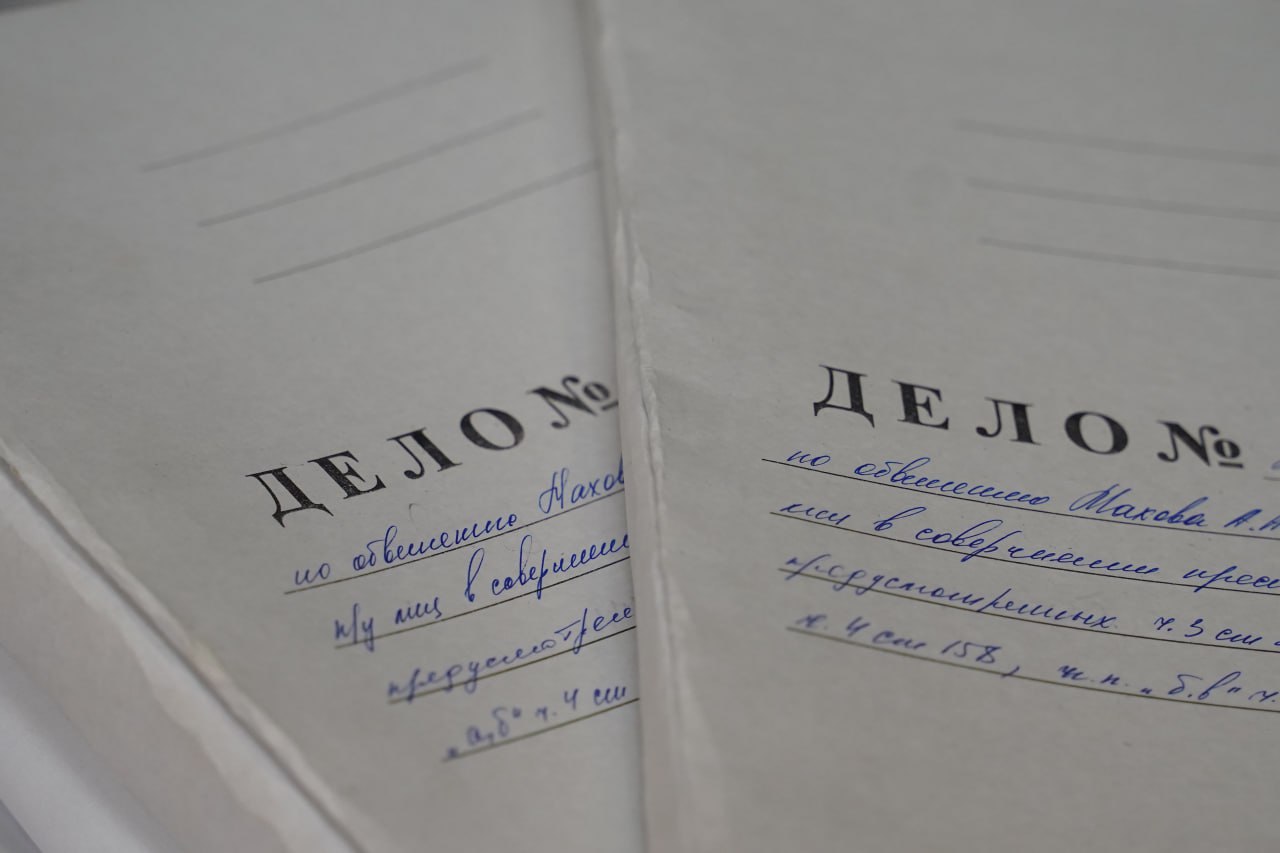 ДЕЛО №
по обвинению Махов
п/у лиц в соверше
предусмотрен
"а,б" ч. 4 ст
ДЕЛО №
по обвинению Махова А.А
лиц в совершении прес
предусмотренных ч. 3 ст
ч. 4 ст 158, ч. п. "б,в" ч.